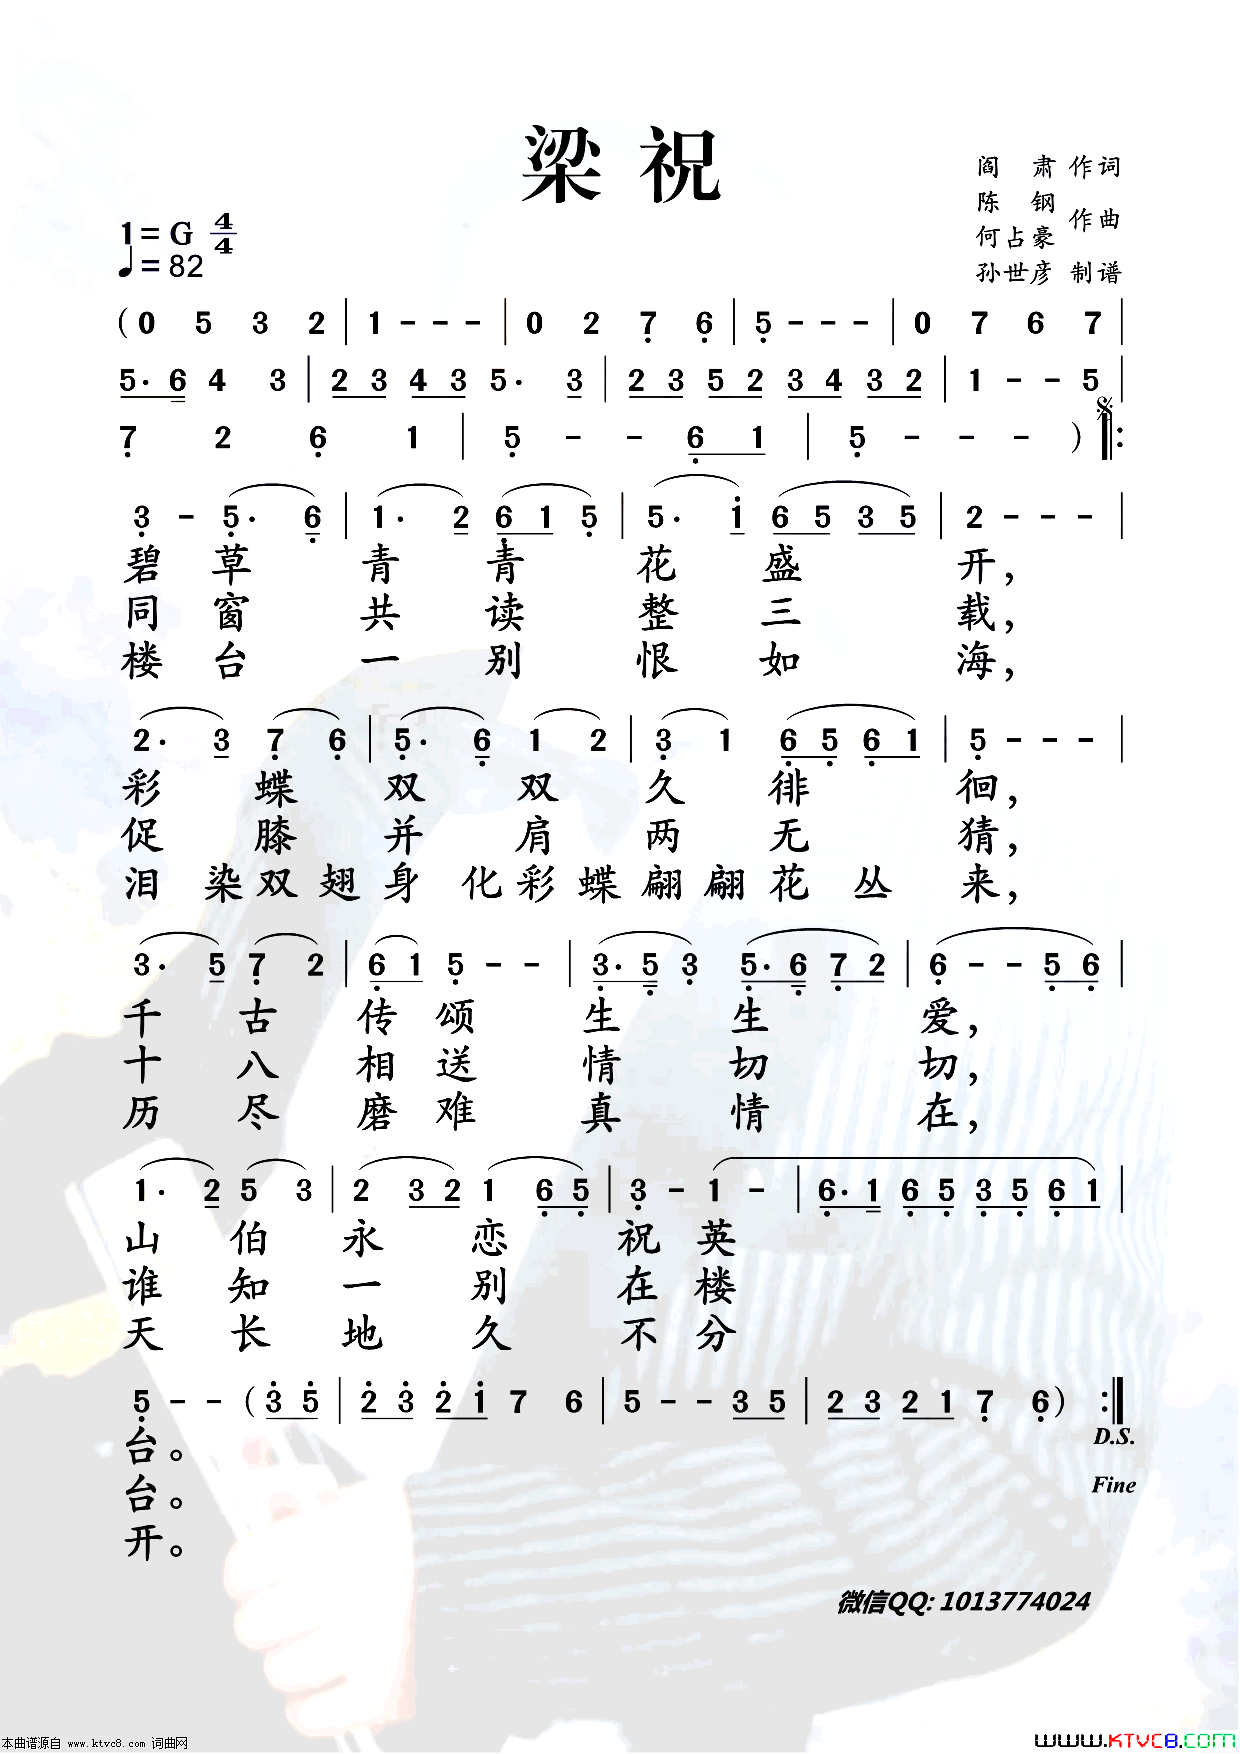 梁祝
阎 肃 作词
陈 钢
何占豪 作曲
孙世彦 制谱
1=G 4/4
♩=82
(0 5 3 2 | 1 - - - | 0 2 7̣ 6̣ | 5̣ - - - | 0 7 6 7 |
5· 6 4 3 | 2 3 4 3 5· 3 | 2 3 5 2 3 4 3 2 | 1 - - 5 |
7̣ 2 6̣ 1 | 5̣ - - 6̣ 1 | 5̣ - - - ) 𝄋 ‖:
3̣ - 5̣· 6̣ | 1· 2 6̣ 1 5̣ | 5· i 6 5 3 5 | 2 - - - |
碧草青青花盛开,
同窗共读整三载,
楼台一别恨如海,
2· 3 7̣ 6̣ | 5̣· 6̣ 1 2 | 3̣ 1 6̣ 5̣ 6̣ 1 | 5̣ - - - |
彩蝶双双久徘徊,
促膝并肩两无猜,
泪染双翅身化彩蝶翩翩花丛来,
3· 5 7̣ 2 | 6̣ 1 5̣ - - | 3̣· 5̣ 3̣ 5̣· 6̣ 7̣ 2 | 6̣ - - 5̣ 6̣ |
千古传颂生生爱,
十八相送情切切,
历尽磨难真情在,
1· 2 5 3 | 2 3 2 1 6̣ 5̣ | 3̣ - 1 - | 6̣· 1 6̣ 5̣ 3̣ 5̣ 6̣ 1 |
山伯永恋祝英
谁知一别在楼
天长地久不分
5̣ - - (3̇ 5̇ | 2̇ 3̇ 2̇ i 7 6 | 5 - - 3 5 | 2 3 2 1 7̣ 6̣) :‖
D.S.
台。
台。
Fine
开。
微信QQ: 1013774024
本曲谱源自 www.ktvc8.com 词曲网
WWW.KTVC8.COM